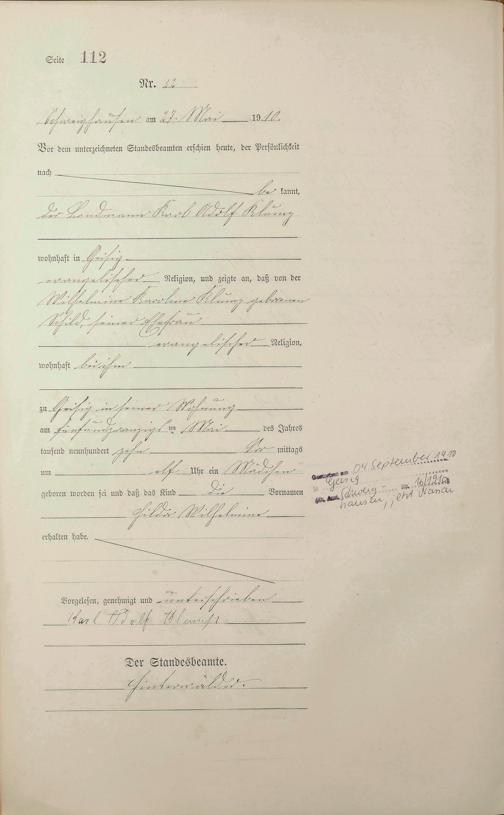 Seite 112
Nr. 12
Schweighausen am 27. Mai 1910.
Vor dem unterzeichneten Standesbeamten erschien heute, der Persönlichkeit
nach
be kannt,
der Landmann Karl Adolf
wohnhaft in Geisig
evangelischer Religion, und zeigte an, daß von der
Wilhelmine Karoline geborenen
Schild, seiner Ehefrau
evangelischer Religion,
wohnhaft bei ihm
zu Geisig in seiner Wohnung
am ten Mai des Jahres
tausend neunhundert zehn Vor mittags
um elf Uhr ein Mädchen
geboren worden sei und daß das Kind die Vornamen
Hilda Wilhelmine
erhalten habe.
Vorgelesen, genehmigt und unterschrieben
Karl Adolf
Der Standesbeamte.
04 September 19
Geisig
Schweig-
hausen, jetzt Nassau